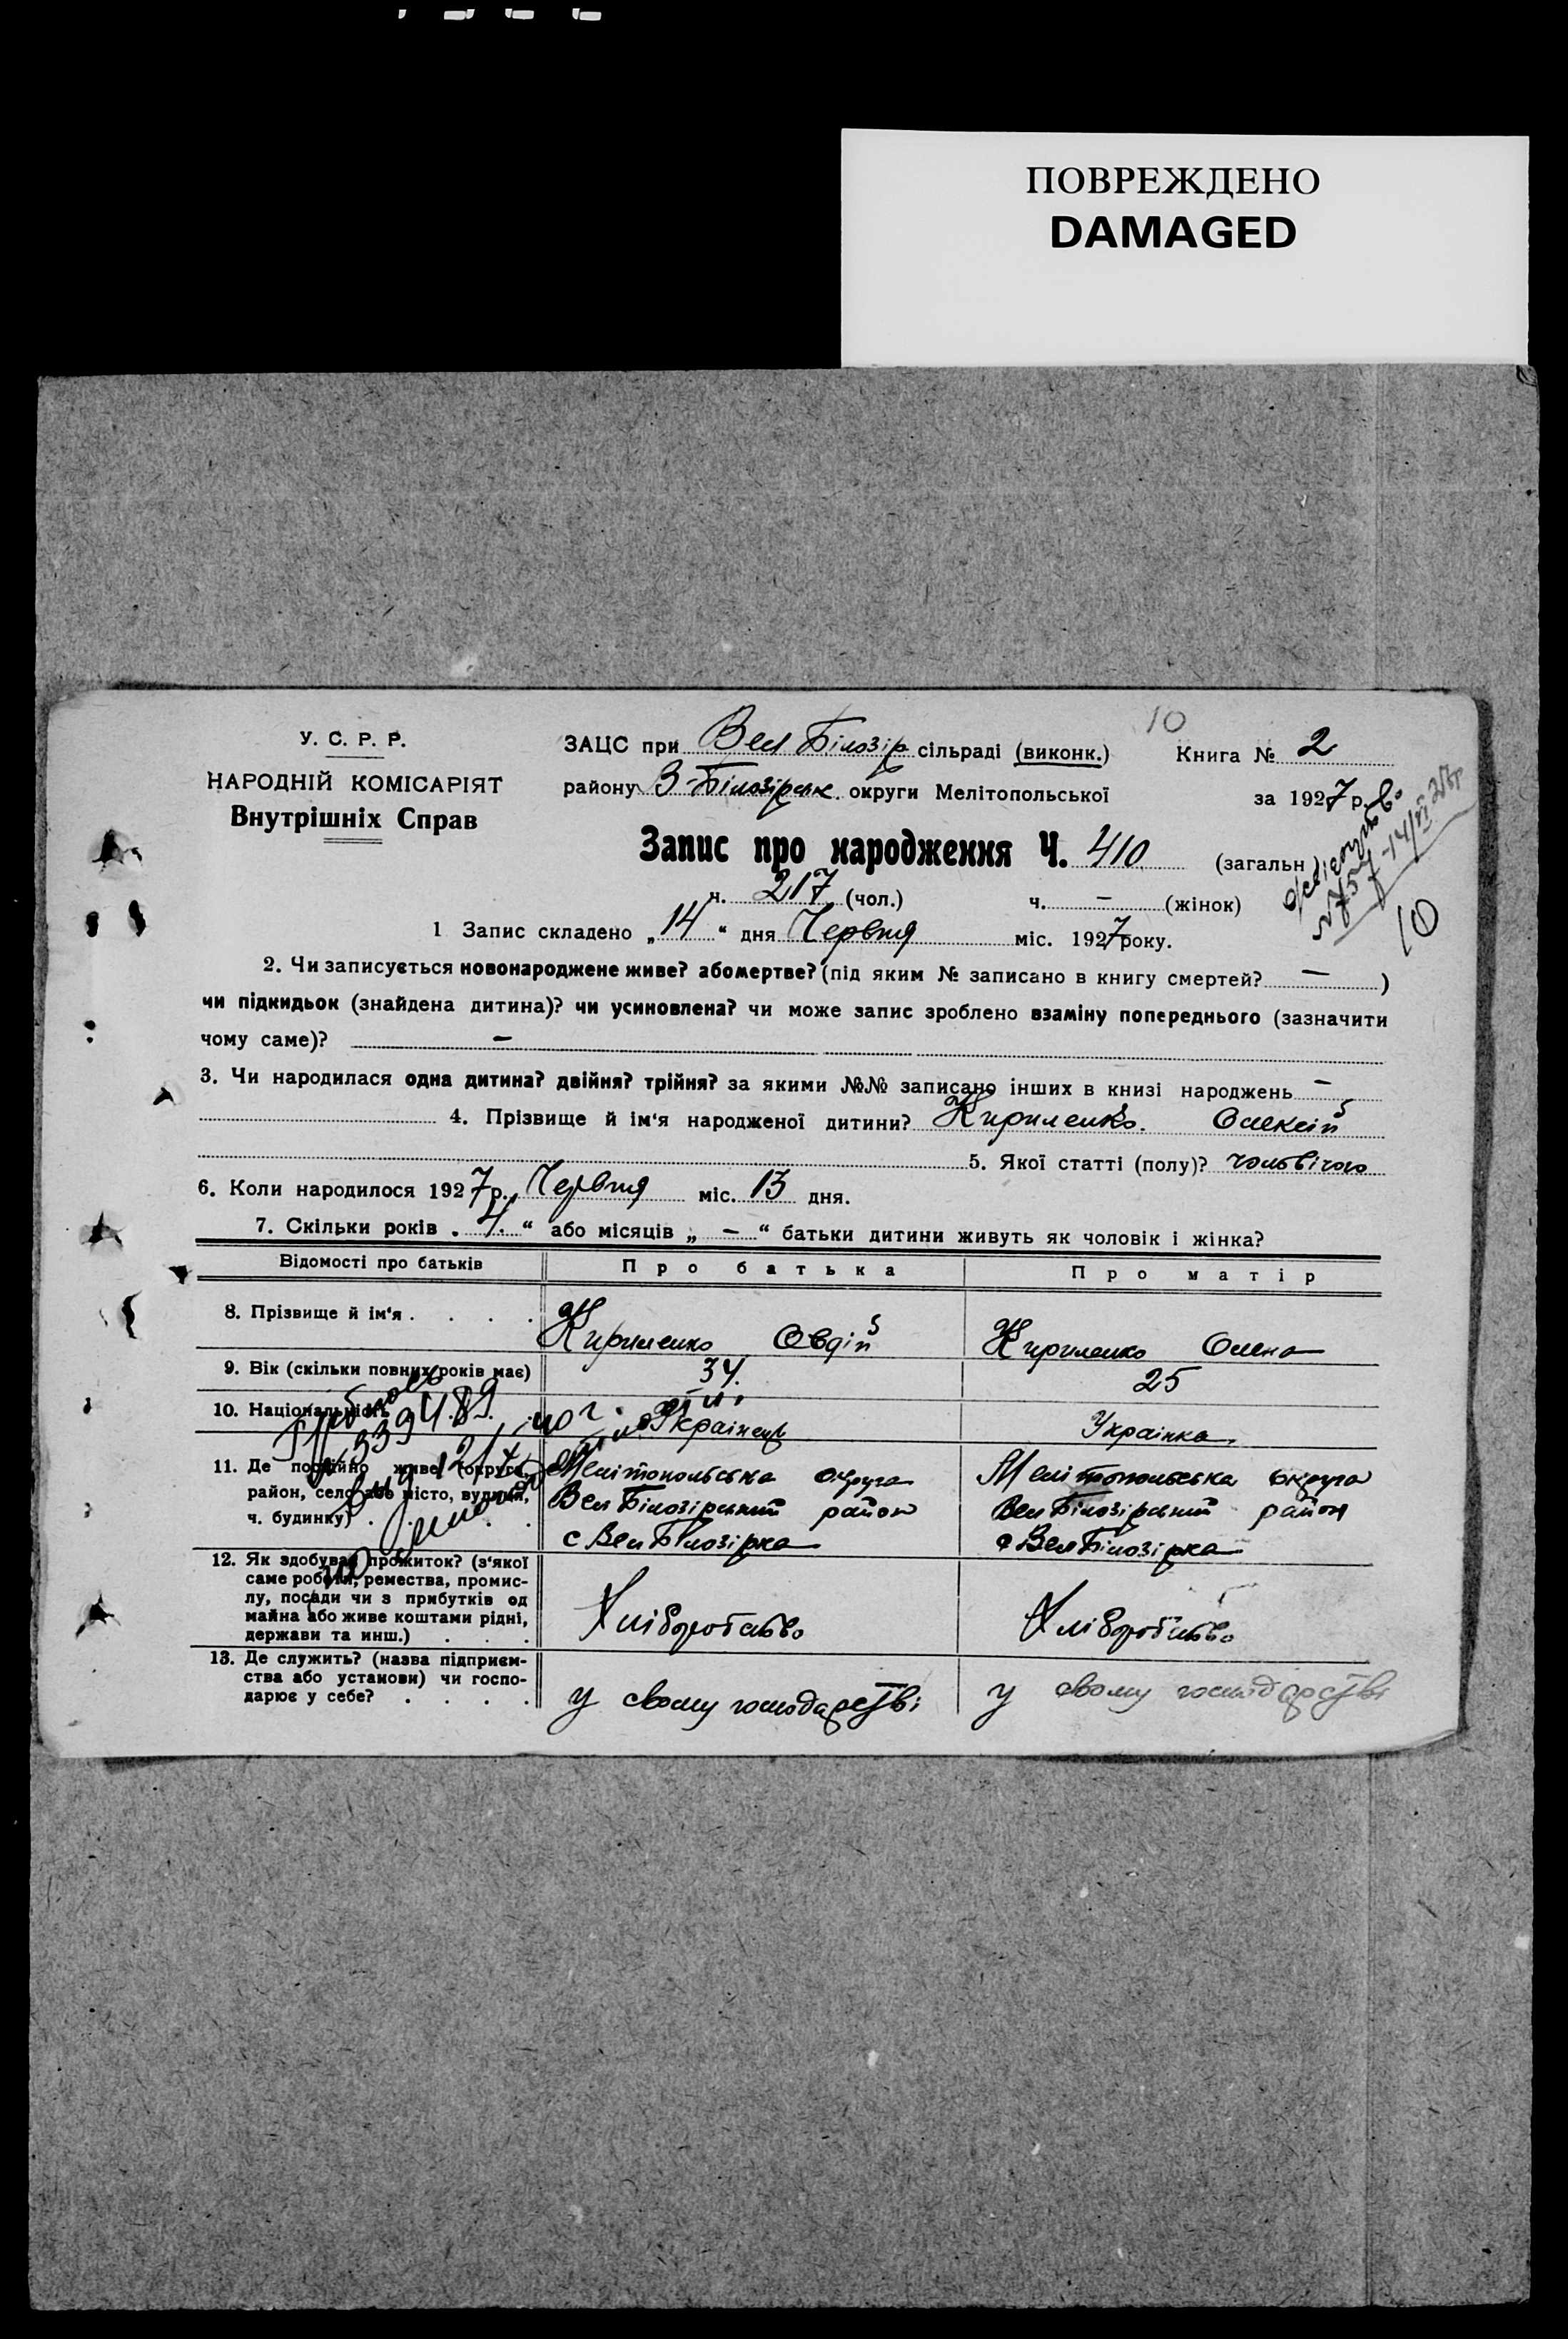 ПОВРЕЖДЕНО
DAMAGED
У. С. Р. Р.
НАРОДНІЙ КОМІСАРІЯТ
Внутрішніх Справ
10
ЗАЦС при Вел Білозір сільраді (виконк.) Книга № 2
району В-Білозірськ. округи Мелітопольської за 1927 р.
Запис про народження Ч. 410 (загальн.)
ч. 217 (чол.) ч. — (жінок)
10
1 Запис складено „14“ дня Червня міс. 1927 року.
2. Чи записується новонароджене живе? або мертве? (під яким № записано в книгу смертей? — )
чи підкидьок (знайдена дитина)? чи усиновлена? чи може запис зроблено взаміну попереднього (зазначити
чому саме)? —
3. Чи народилася одна дитина? двійня? трійня? за якими №№ записано інших в книзі народжень —
4. Прізвище й ім'я народженої дитини? Кириленко. Олексій
5. Якої статті (полу)? чоловічого
6. Коли народилося 1927 р. Червня міс. 13 дня.
7. Скільки років „4.“ або місяців „ — “ батьки дитини живуть як чоловік і жінка?
Відомості про батьків Про батька Про матір
8. Прізвище й ім'я . . . . Кириленко Овдій Кириленко Олена
9. Вік (скільки повних років має) 34. 25
10. Національність Українець Українка.
11. Де постійно живе (округа, Мелітопольська округа Мелітопольська округа
район, село або місто, вулиця, Вел Білозірський район Вел Білозірський район
ч. будинку) . . . . с Вел Білозірка с Вел Білозірка
12. Як здобуває прожиток? (з'якої
саме роботи, ремества, промис-
лу, посади чи з прибутків од
майна або живе коштами рідні, Хліборобство Хліборобство
держави та инш.) . . .
13. Де служить? (назва підприєм-
ства або установи) чи госпо-
дарює у себе? . . . . у свому господарстві у свому господарстві